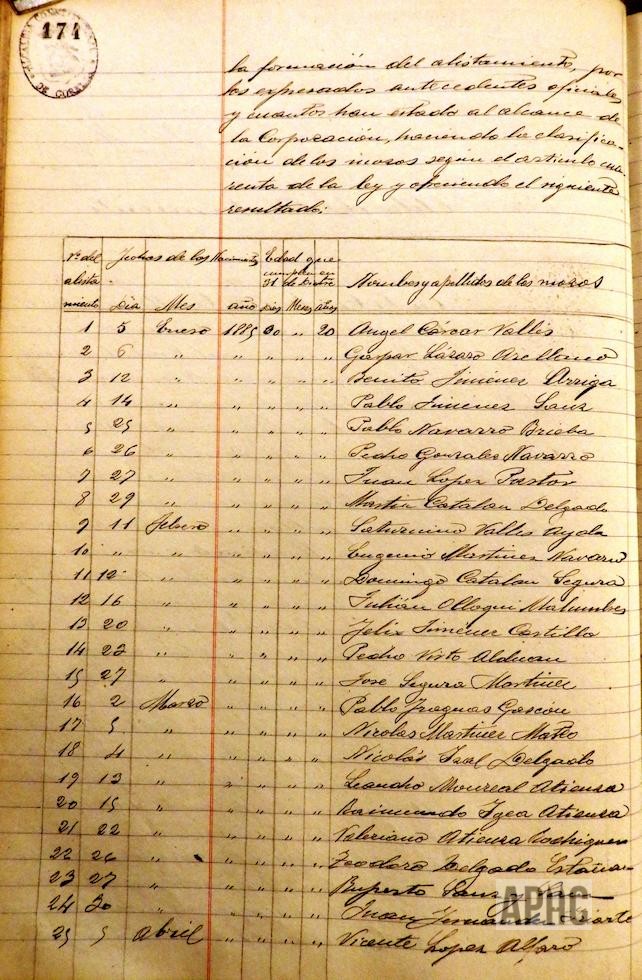 171
la formación del alistamiento, por
los expresados antecedentes oficiales
y cuantos han estado al alcance de
la Corporación, haciendo la clasifica-
ción de los mosos según el articulo cua
renta de la ley y ofreciendo el siguiente
resultado:
Nº del alistamiento Fechas de los Nacimientos Edad que cumplen en 31 de Dbre Nombres y apellidos de los mosos
Dia Mes año Dias Meses años
1 5 Enero 1885 30 " 20 Angel Cárcar Vallés
2 6 " " " " " Gaspar Lázaro Arellano
3 12 " " " " " Benito Jiménez Arriga
4 14 " " " " " Pablo Jimenez Sanz
5 25 " " " " " Pablo Navarro Brieba
6 26 " " " " " Pedro Gonzales Navarro
7 27 " " " " " Juan Lopez Pastor
8 29 " " " " " Martin Catalan Delgado
9 11 Febrero " " " " Saturnino Valles Ayala
10 " " " " " " Eugenio Martinez Navarro
11 12 " " " " " Domingo Catalan Segura
12 16 " " " " " Julián Olloqui Malumbres
13 20 " " " " " Felix Jiménez Castillo
14 23 " " " " " Pedro Virto
15 27 " " " " " José Segura Martinez
16 2 Marzo " " " " Pablo Fraguas Gascón
17 5 " " " " " Nicolas Martinez Mateo
18 4 " " " " " Nicolás Delgado
19 13 " " " " " Leandro Monreal Atienza
20 15 " " " " " Raimundo Igea Atienza
21 22 " " " " " Valeriano Atienza Rodriguez
22 26 " " " " " Teodoro Delgado
23 27 " " " " " Ruperto Sanz
24 30 " " " " " Juan Fernandez
25 5 Abril " " " " Vicente Lopez Alfaro
APHC